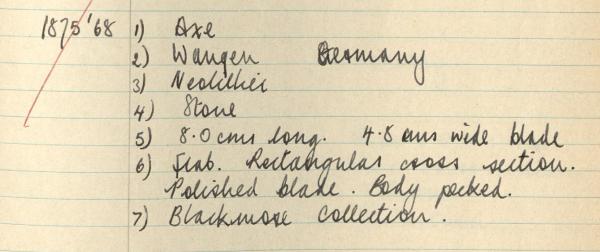 1875'68 1) Axe
2) Wangen Germany
3) Neolithic
4) Stone
5) 8.0 cms long. 4.8 cms wide blade
6) Slab. Rectangular cross section.
Polished blade. Body pecked.
7) Blackmore Collection.